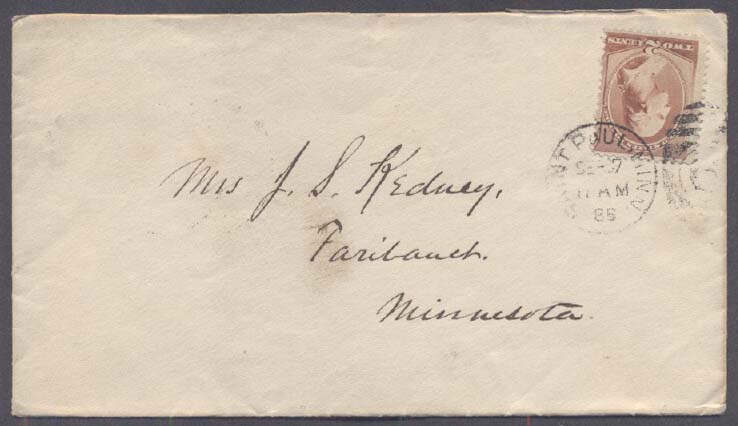 TWO CENTS
SAINT PAUL MINN
11 AM
86
Mrs J. S. Kedney,
Faribault.
Minnesota.